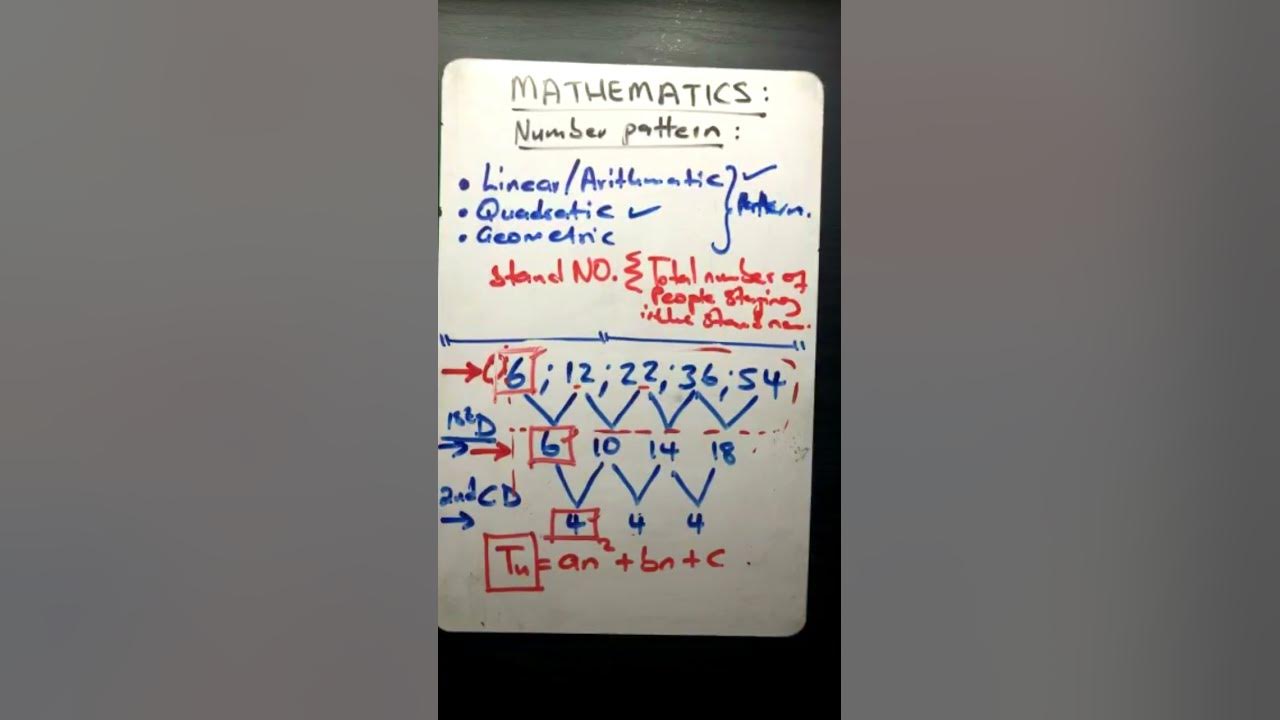 MATHEMATICS:
Number pattern:
• Linear/Arithmatic } ✓
• Quadratic ✓ Pattern.
• Geometric
Stand NO. { Total number of
People staying
in the stand no.
→ ( ) 6 ; 12 ; 22 ; 36 ; 54
1st D
→ → 6 10 14 18
2nd CD
→ 4 4 4
Tn = an² + bn + c .